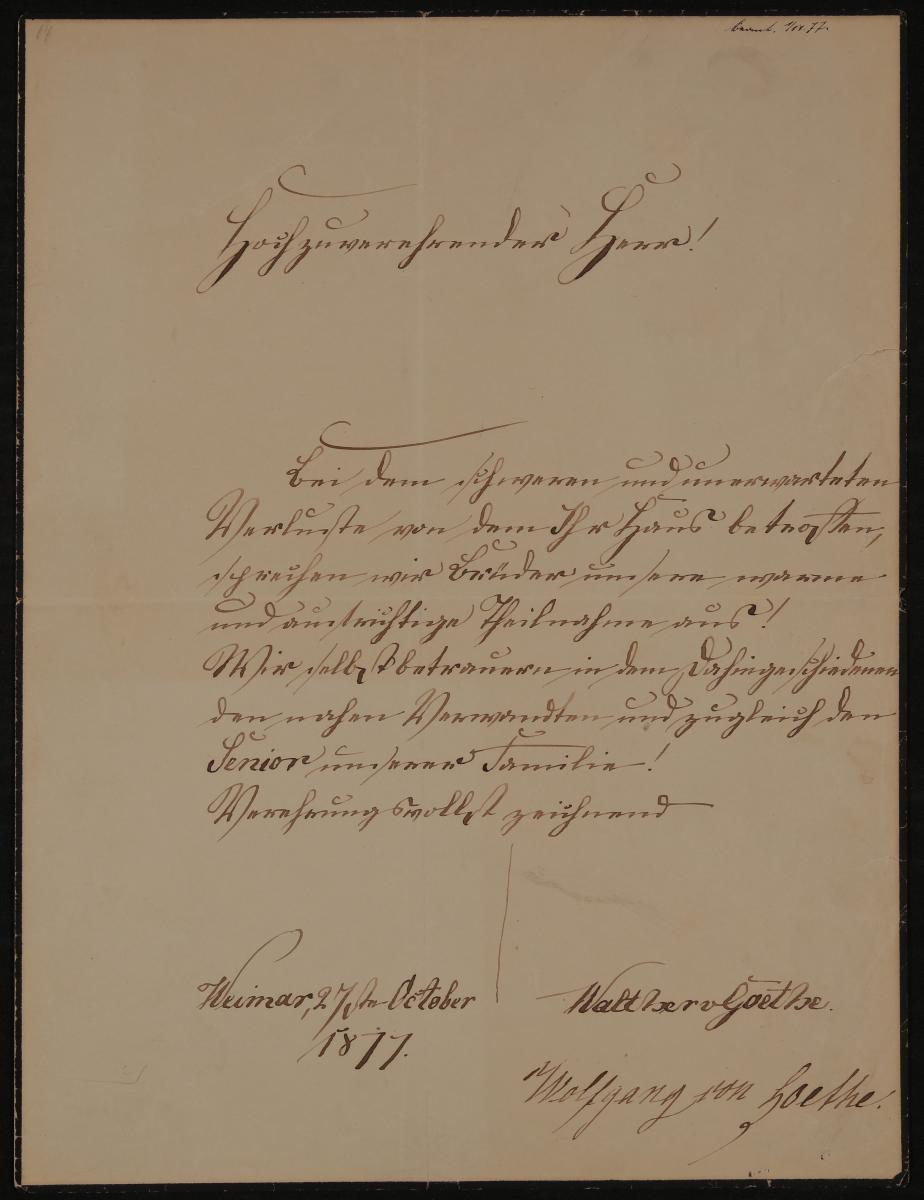 14
beant. 1/XI. 77.
Hochzuverehrender Herr!
Bei dem schweren und unerwarteten
Verluste von dem Ihr Haus betroffen,
sprechen wir Brüder unsere warme
und aufrichtige Theilnahme aus!
Wir selbst betrauern in dem Dahingeschiedenen
den nahen Verwandten und zugleich den
Senior unserer Familie!
Verehrungsvollst zeichnend
Weimar, 27ste October
1877.
Walther v Goethe.
Wolfgang von Goethe.